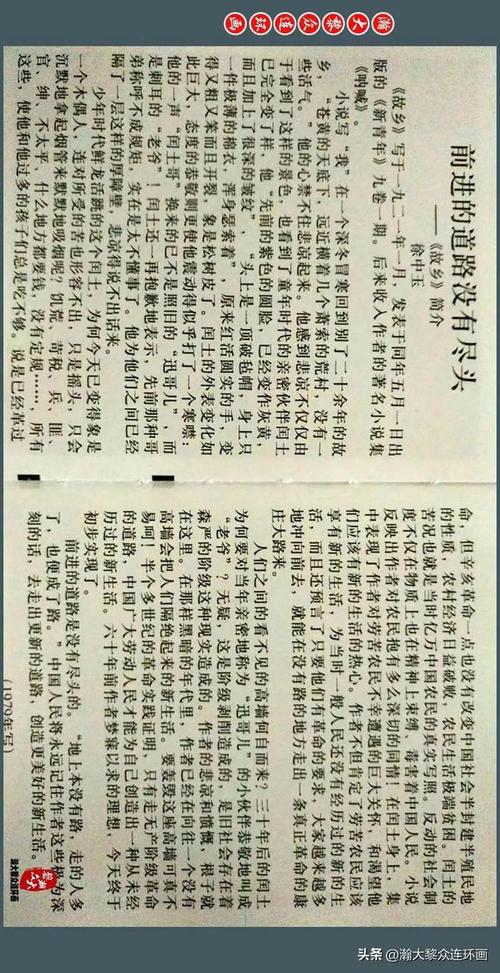 瀚大黎众连环画
前进的道路没有尽头
——《故乡》简介
徐中玉
《故乡》写于一九二一年一月,发表于同年五月一日出
版的《新青年》九卷一期。后来收入作者的著名小说集
《呐喊》。
小说写“我”在一个深冬冒寒回到别了二十余年的故
乡,“苍黄的天底下,远近横着几个萧索的荒村,没有一
些活气。”他的心禁不住悲凉起来。他感到悲凉不仅仅由
于看到了这样的景色,也看到了童年时代的亲密伙伴闰土
已完全变了样,他“先前的紫色的圆脸,已经变作灰黄,
而且加上了很深的皱纹”,“头上是一顶破毡帽,身上只
一件极薄的棉衣,浑身瑟索着”,原来红活圆实的手,变
得又粗又笨而且开裂,象是松树皮了。闰土的外表变化如
此巨大,态度的恭敬则更使他震动得似乎打了一个寒噤:
他的一声“闰土哥”换来的已不是照旧的“迅哥儿”,而
是刺耳的“老爷”!闰土还一再抱歉地表示,先前那种哥
弟称呼不成规矩,实在是太不懂事了。他为他们之间已经
隔了一层这样的厚障壁,悲凉得说不出话来。
少年时代鲜龙活跳的这个闰土,为何今天已变得象是
一个木偶人,连对所受的苦也形容不出,只是摇头,只会
沉默地拿起烟管来默默地吸烟呢?饥荒、苛税、兵、匪、
官、绅、不太平、什么地方都要钱,没有定规……,所有
这些,使他和他过多的孩子们总是吃不够。说是已经革过
命,但辛亥革命一点也没有改变中国社会半封建半殖民地
的性质,农村经济日益破败,农民生活极端贫困。闰土的
苦况也就是当时亿万中国农民的真实写照。反动的社会制
度不仅在物质上也在精神上束缚、毒害着中国人民。小说
反映出作者对农民抱有多么深切的同情!在闰土身上,集
中表现了作者对劳苦农民不幸遭遇的巨大关怀,和渴望他
们应该有新的生活的热心。作者不但肯定了劳苦农民应该
享有新的生活,为当时一般人民还没有经历过的新的生
活,而且还预言了只要他们有革命的要求,大家越来越多
地冲向前去,就能在没有路的地方走出一条真正革命的康
庄大路来。
人们之间的看不见的高墙何自而来?三十年后的闰土
为何要对当年亲密地称为“迅哥儿”的小伙伴恭敬地叫成
“老爷”?无疑,这是阶级剥削造成的,是旧社会存在着
森严的阶级这种现实造成的。作者的悲凉和愤慨,根子就
在这里。在那样黑暗的年代里,作者已经在向往一个没有
高墙会把人们隔绝起来的新生活。要轰毁这座高墙可真不
易呵!半个多世纪的革命实践证明,只有走无产阶级革命
的道路,中国广大劳动人民才能为自己创造出一种从未经
历过的新生活。六十年前作者梦寐以求的理想,今天终于
初步实现了。
前进的道路是没有尽头的。“地上本没有路,走的人多
了,也便成了路。”中国人民将永远记住作者这些极为深
刻的话,去走出更新的道路,创造更美好的新生活。
(1979年写)
瀚大黎众连环画
头条 @瀚大黎众连环画